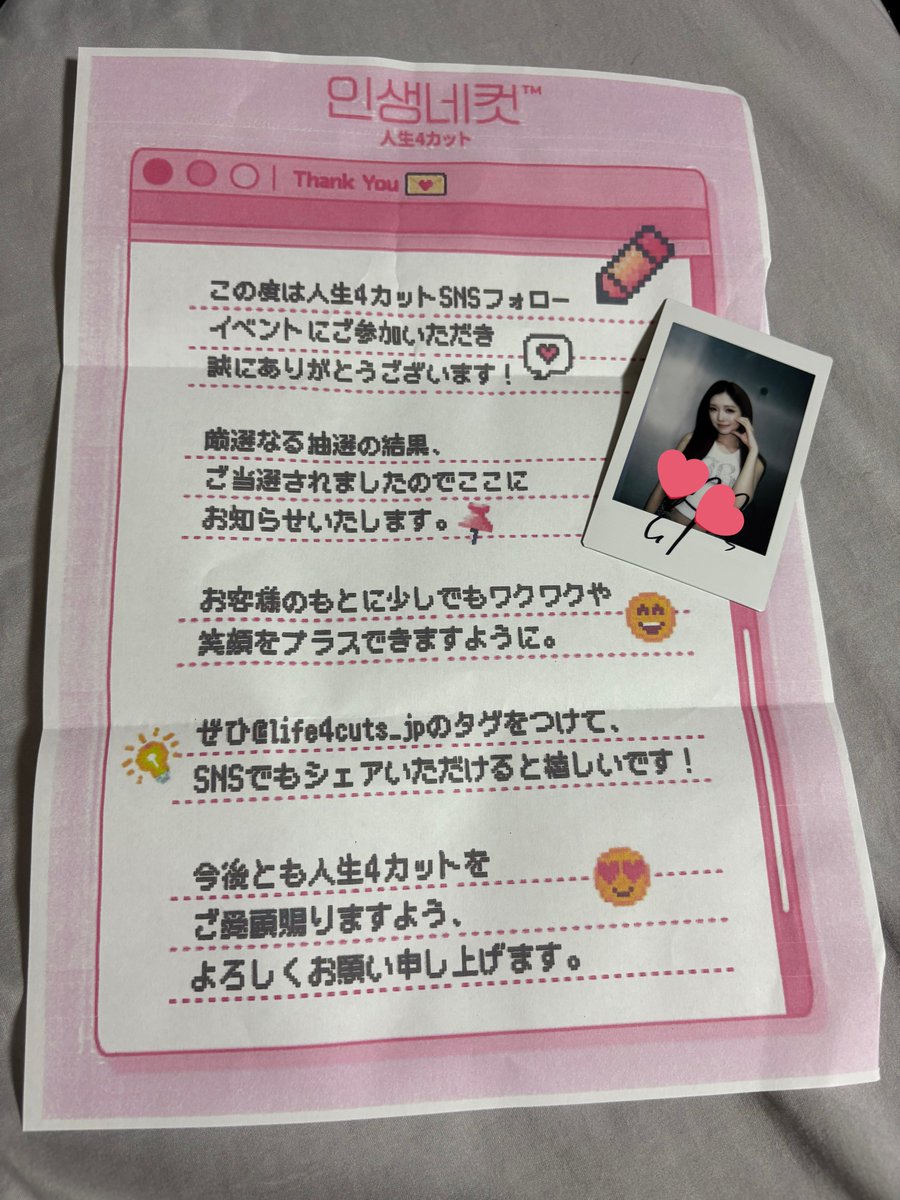 인생네컷™
人生4カット
Thank You
この度は人生4カットSNSフォロー
イベントにご参加いただき
誠にありがとうございます！
厳選なる抽選の結果、
ご当選されましたのでここに
お知らせいたします。
お客様のもとに少しでもワクワクや
笑顔をプラスできますように。
ぜひ@life4cuts_jpのタグをつけて、
SNSでもシェアいただけると嬉しいです！
今後とも人生4カットを
ご愛顧賜りますよう、
よろしくお願い申し上げます。